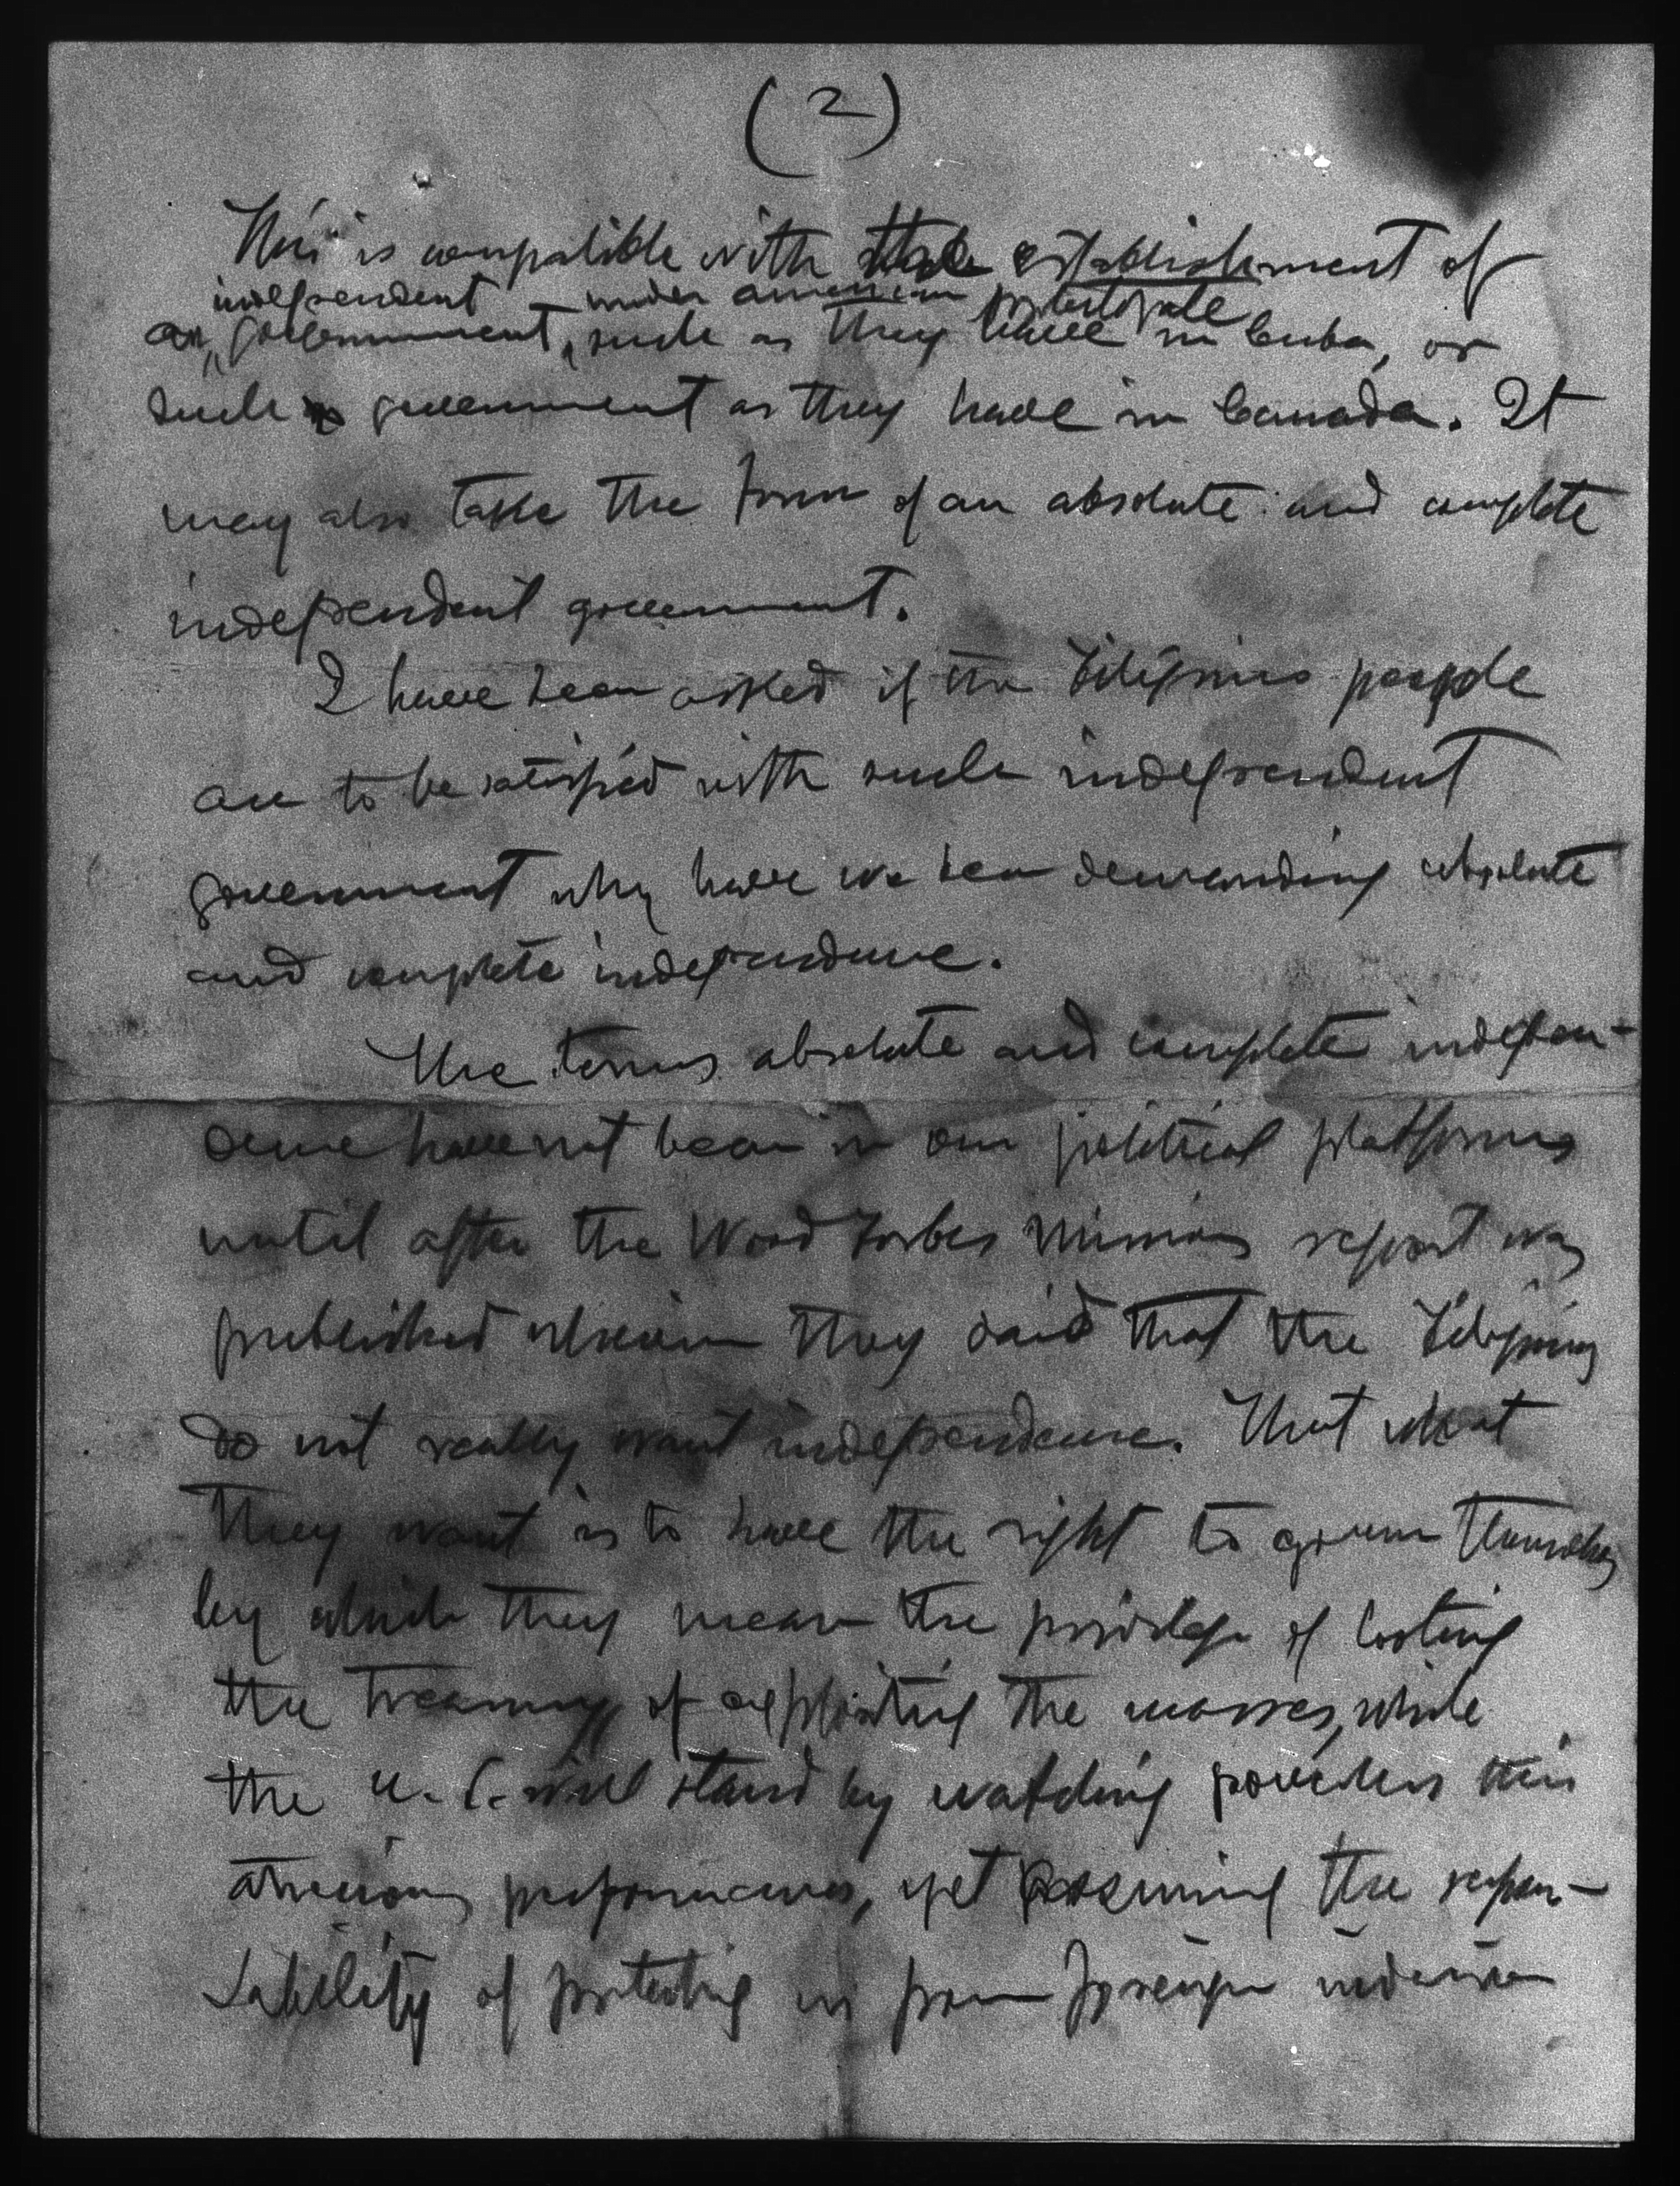 (2)
This is compatible with the establishment of
independent under american protectorate
an government, such as they have in Cuba, or
such government as they have in Canada. It
may also take the form of an absolute and complete
independent government.
I have been asked if the Filipino people
are to be satisfied with such independent
government why have we been demanding absolute
and complete independence.
The terms absolute and complete indepen-
dence have not been in our political platforms
until after the Wood Forbes Mission report was
published wherein they said that the Filipinos
do not really want independence. That what
they want is to have the right to govern themselves
by which they mean the privilege of looting
the treasury of exploiting the masses, while
the U.S. will stand by watching powerless this
atrocious performances, yet assuming the respon-
sability of protecting us from foreign